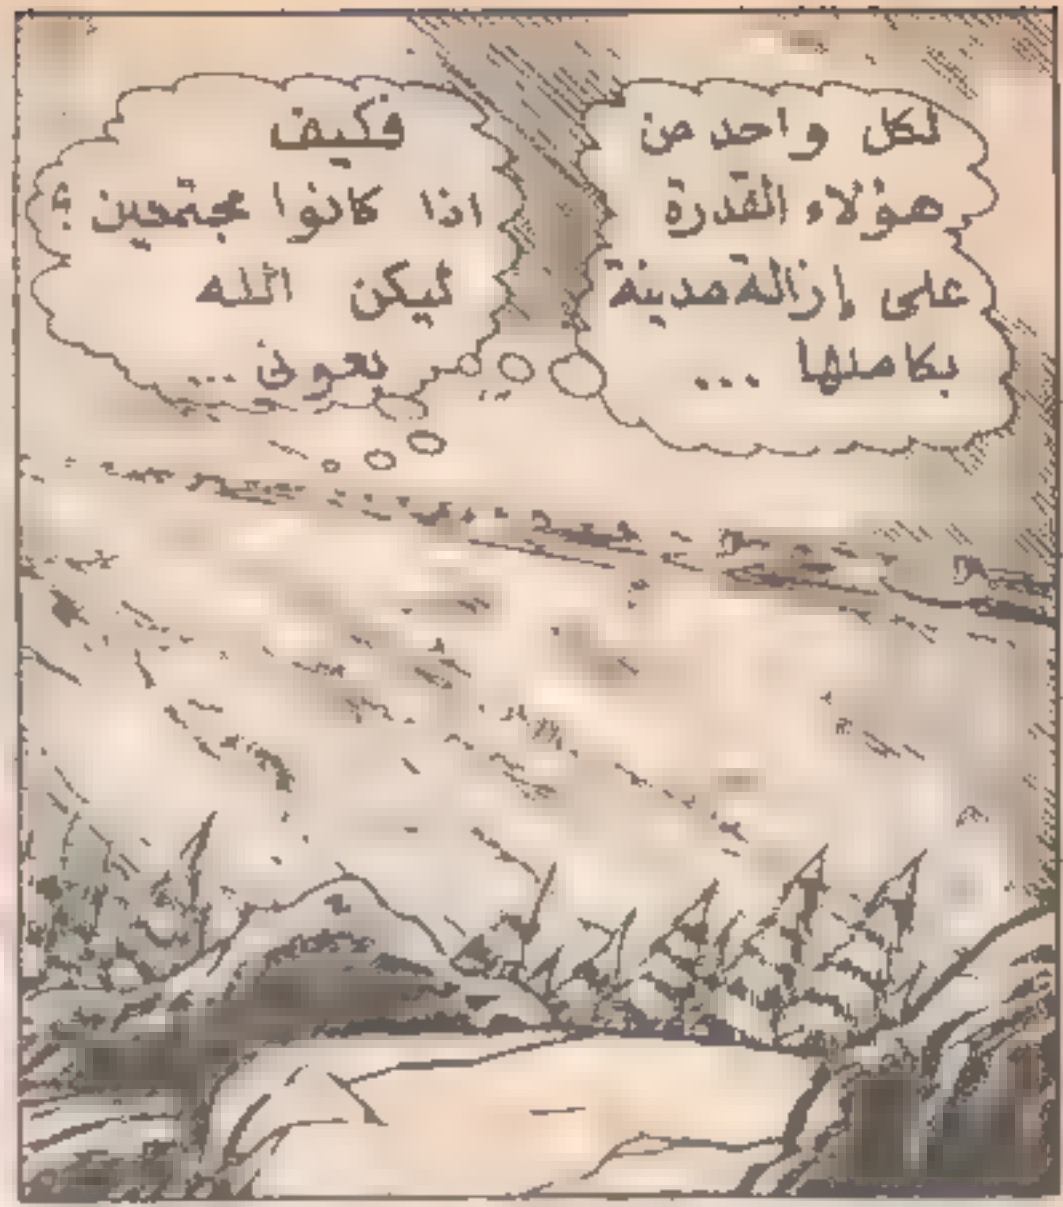 لكل واحد من
هؤلاء القدرة
على إزالة مدينة
بكاملها ...
فكيف
اذا كانوا مجتمعين ؟
ليكن الله
بعوني ...